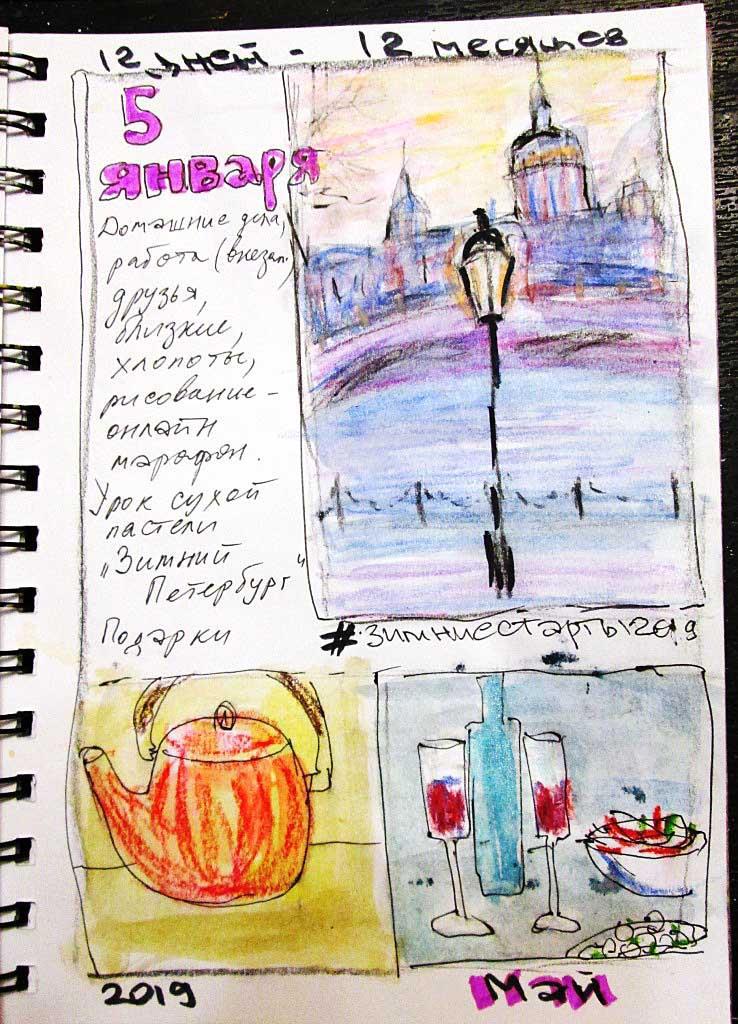 12 дней - 12 месяцев
5
января
Домашние дела,
работа (внезап.)
друзья,
близкие,
хлопоты,
рисование -
онлайн
марафон.
Урок сухой
пастели
„Зимний
Петербург"
Подарки
#зимниестарты2019
2019
Май